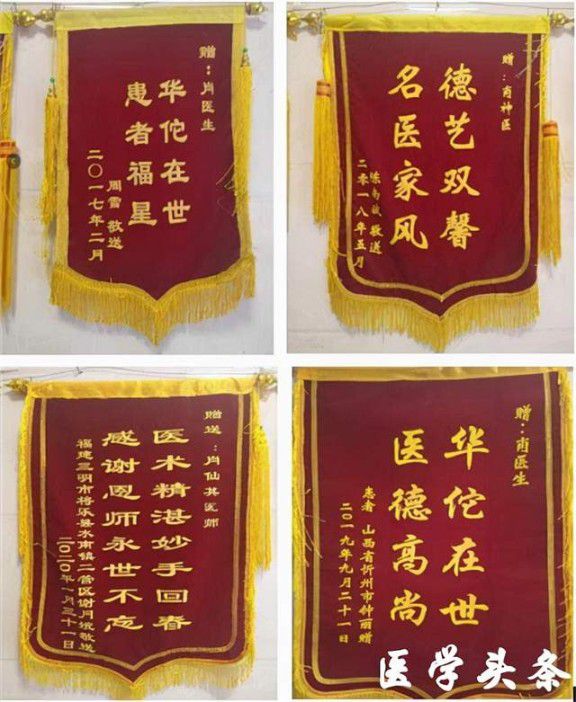 赠：肖医生
华佗在世
患者福星
周雪 敬送
二〇一七年二月
赠：肖神医
德艺双馨
名医家风
敬送
二零一八年五月
赠送：肖仙英医师
医术精湛妙手回春
感谢恩师永世不忘
福建三明市将乐县水南镇二营区谢月娥敬送
二〇二〇年一月三十一日
赠：肖医生
华佗在世
医德高尚
患者 山西省忻州市钟丽赠
二〇一九年九月二十一日
医学头条